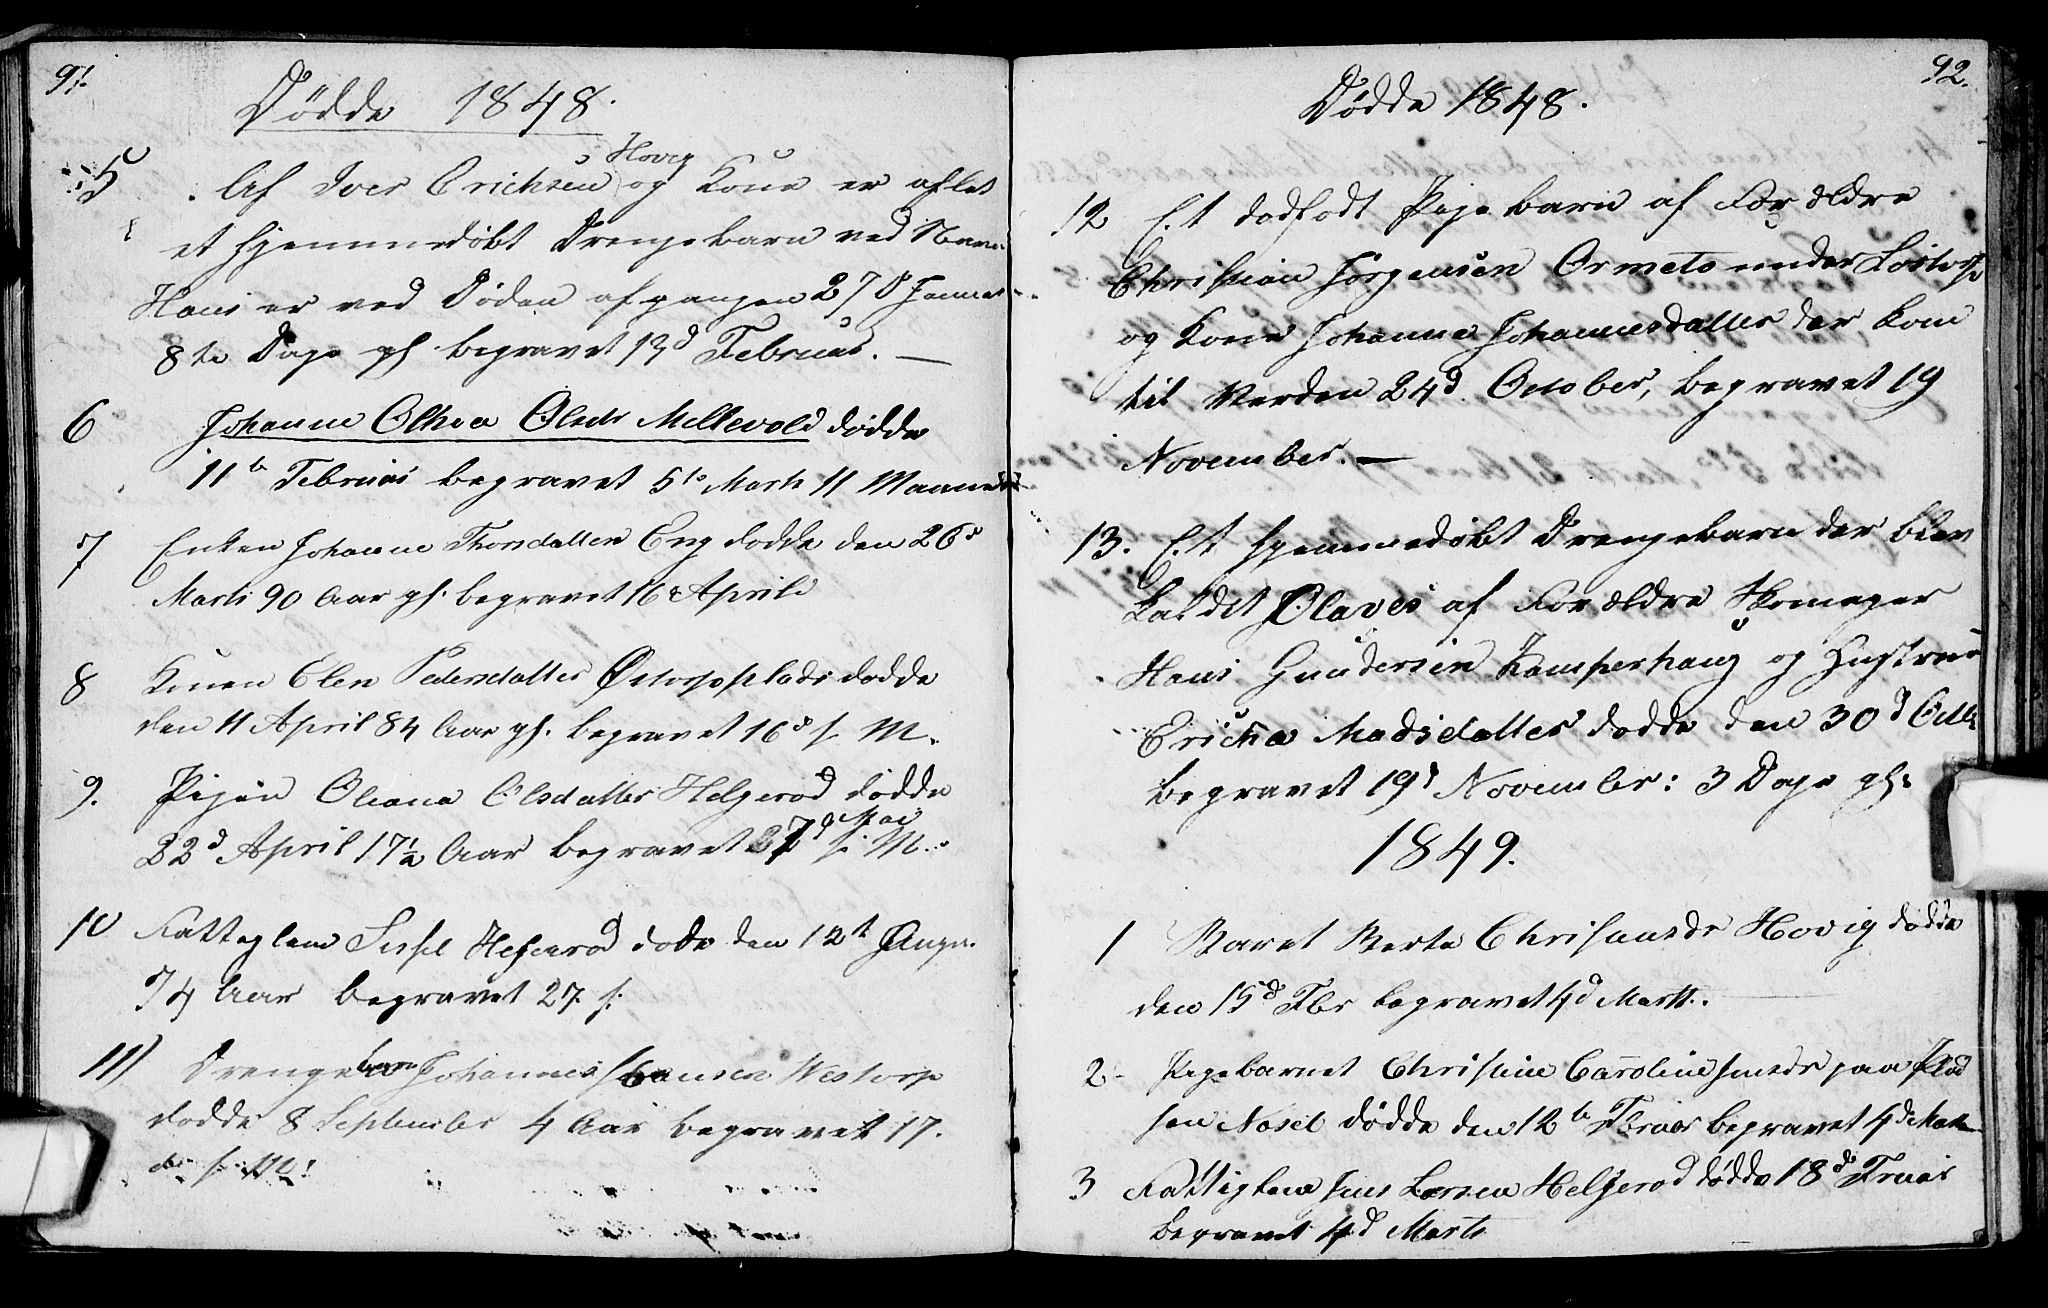 91.
Dödde 1848.
Hovig
5 . Af Iver Erichsen og Kone er aflet
et hjemmedöbt Drengebarn ved Navn
Hans er ved Döden afgangen 27d Januar
8te Dage gl. begravet 13d Februar. —
6 Johanne Olhea Olsdr Mellevold dödde
11te Februar begravet 5te Marts 11 Maaneder
7 Enken Johanne Thorsdatter Eng dödde den 26d
Marts 90 Aar gl. begravet 16 April
8 Konen Elen Pedersdatter Østorpplads dödde
den 11 April 84 Aar gl. begravet 16d s. M.
9. Pigen Oleana Olsdatter Helgerød dödde
Mai
22d April 17½ Aar begravet 27d s. M.
10 Fattiglem Sissel Helgerød döde den 12t Augu.
74 Aar begravet 27. s.
11) Drengebarn Johannes Hansen Westorp
dödde 8 September 4 Aar begravet 17.
s. M!
92.
Dödde 1848.
12 Et dödfödt Pigebarn af Forældre
Christian Jörgensen Ormeto under Løstorp
og Kone Johanne Johannesdatter der kom
til Verden 24d October, begravet 19
November. —
13. Et hjemmedöbt Drengebarn der blev
kaldet Olaves af Forældre Skomager
Hans Gundersen Kamperhaug og Hustrue
Ericka Madsdatter dödde den 30d Octb
begravet 19d November: 3 Dage gl:
1849.
1 Barnet Berte Chrisansdr Hovig dödde
den 15d Fbr begravet 4d Marts.
2 Pigebarnet Christine Caroline Jensdr paa Plad
sen Nøsel dödde den 12te Fbruar begravet 4de Mart
3 Fattiglem Jens Larsen Helgerød dödde 18d Fruar
begravet 4d Marts